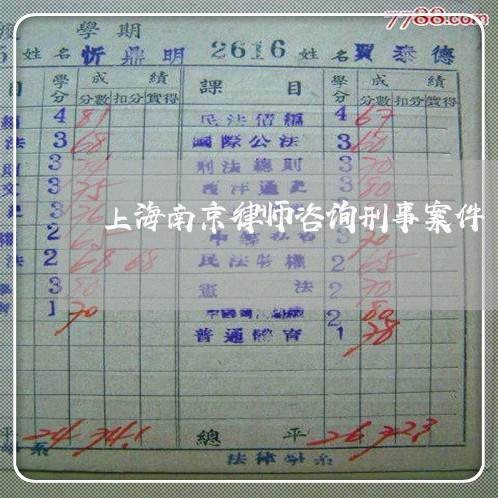 7788.com
學期
姓名 忻鼎明 2616 姓名 賈泰德
目 學分 成績 課目 學分 成績
分數 扣分 實得 分數 扣分 實得
4 81 民法債編 4 67
法 3 68 國際公法 3 60
3 刑法總則 3 70
3 75 西洋通史 3 80
上海南京律师咨询刑事案件
2 65 3 70
法 2 68 68 民法物權 2 65
3 80 憲法 2 70
1 70 2 80
普通體育 1 78
平 24 74.1 總平 26 72.3
系 法律學系